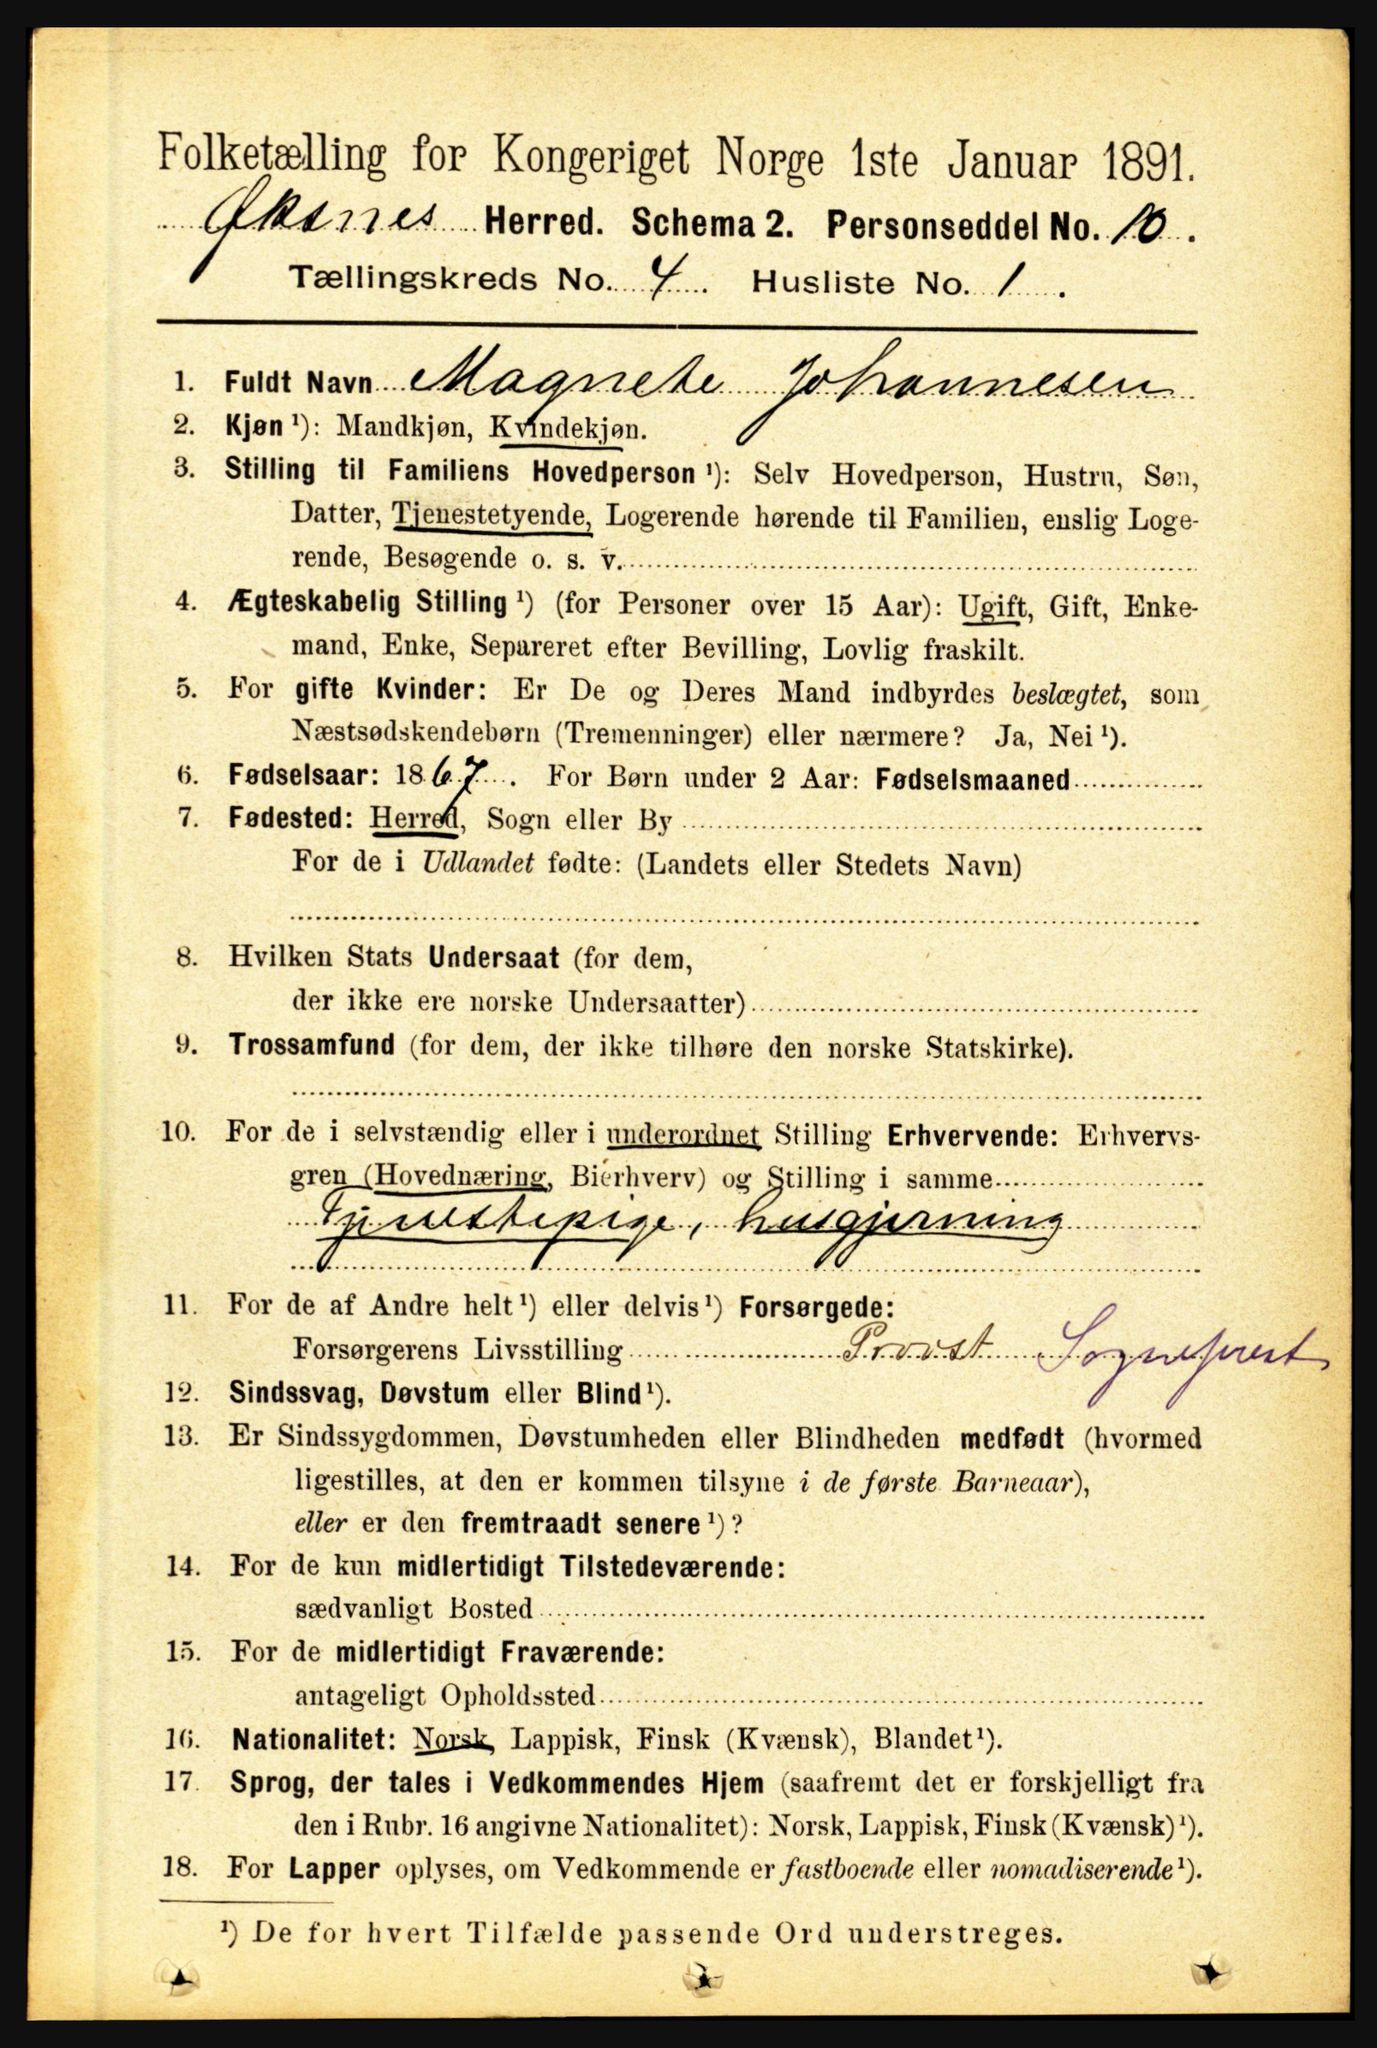 Folketælling for Kongeriget Norge 1ste Januar 1891.
Øksnes Herred. Schema 2. Personseddel No. 10.
Tællingskreds No. 4. Husliste No. 1.
1. Fuldt Navn Magnete Johannesen
2. Kjøn ¹): Mandkjøn, Kvindekjøn.
3. Stilling til Familiens Hovedperson ¹): Selv Hovedperson, Hustru, Søn,
Datter, Tjenestetyende, Logerende hørende til Familien, enslig Loge-
rende, Besøgende o. s. v.
4. Ægteskabelig Stilling ¹) (for Personer over 15 Aar): Ugift, Gift, Enke-
mand, Enke, Separeret efter Bevilling, Lovlig fraskilt.
5. For gifte Kvinder: Er De og Deres Mand indbyrdes beslægtet, som
Næstsødskendebørn (Tremenninger) eller nærmere? Ja, Nei ¹).
6. Fødselsaar: 1867. For Børn under 2 Aar: Fødselsmaaned
7. Fødested: Herred, Sogn eller By
For de i Udlandet fødte: (Landets eller Stedets Navn)
8. Hvilken Stats Undersaat (for dem,
der ikke ere norske Undersaatter)
9. Trossamfund (for dem, der ikke tilhøre den norske Statskirke).
10. For de i selvstændig eller i underordnet Stilling Erhvervende: Erhvervs-
gren (Hovednæring, Bierhverv) og Stilling i samme
Tjenestepige, husgjerning
11. For de af Andre helt ¹) eller delvis ¹) Forsørgede:
Forsørgerens Livsstilling Provst Sogneprest
12. Sindssvag, Døvstum eller Blind ¹).
13. Er Sindssygdommen, Døvstumheden eller Blindheden medfødt (hvormed
ligestilles, at den er kommen tilsyne i de første Barneaar),
eller er den fremtraadt senere ¹)?
14. For de kun midlertidigt Tilstedeværende:
sædvanligt Bosted
15. For de midlertidigt Fraværende:
antageligt Opholdssted
16. Nationalitet: Norsk, Lappisk, Finsk (Kvænsk), Blandet ¹).
17. Sprog, der tales i Vedkommendes Hjem (saafremt det er forskjelligt fra
den i Rubr. 16 angivne Nationalitet): Norsk, Lappisk, Finsk (Kvænsk) ¹).
18. For Lapper oplyses, om Vedkommende er fastboende eller nomadiserende ¹).
¹) De for hvert Tilfælde passende Ord understreges.